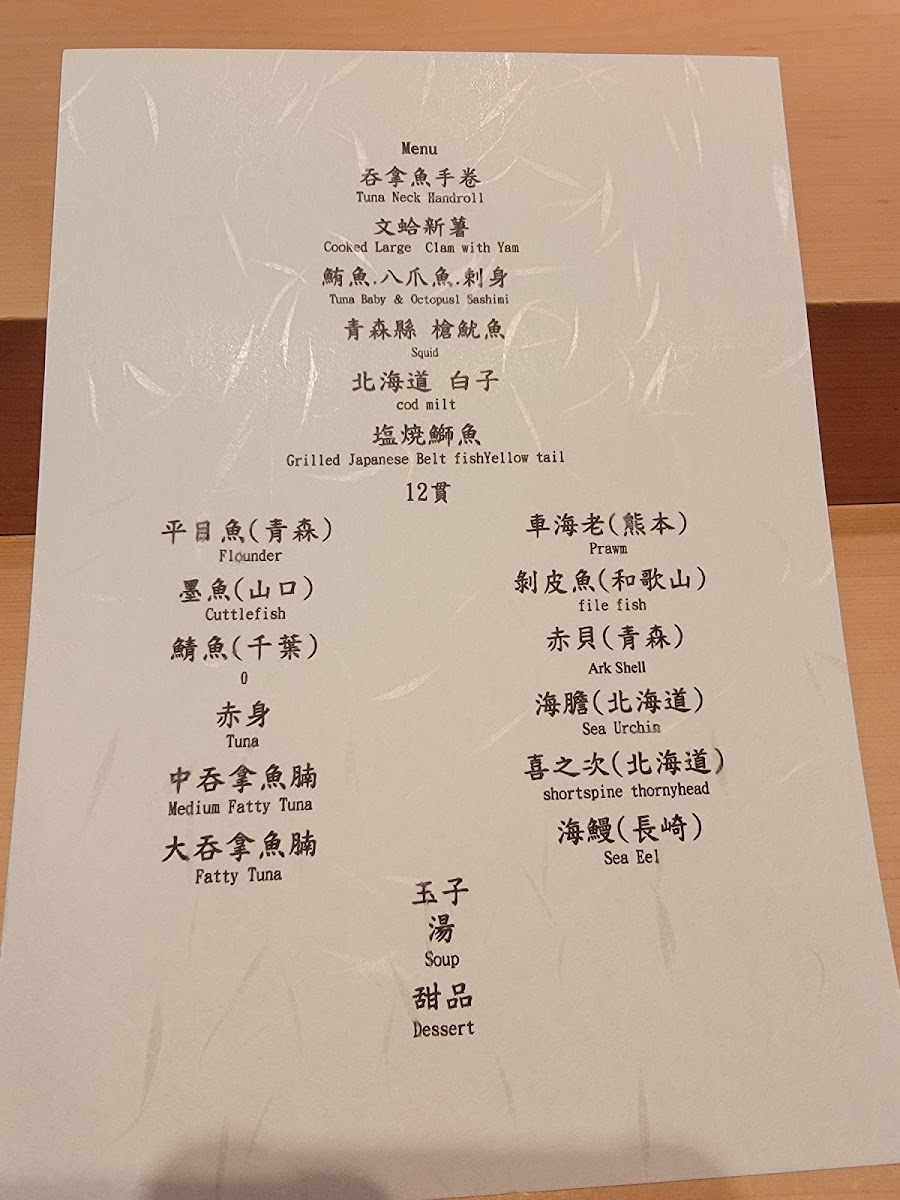 Menu
吞拿魚手卷
Tuna Neck Handroll
文蛤新薯
Cooked Large Clam with Yam
鮪魚.八爪魚.刺身
Tuna Baby & Octopusl Sashimi
青森縣 槍魷魚
Squid
北海道 白子
cod milt
塩焼鰤魚
Grilled Japanese Belt fishYellow tail
12貫
平目魚(青森)
Flounder
墨魚(山口)
Cuttlefish
鯖魚(千葉)
0
赤身
Tuna
中吞拿魚腩
Medium Fatty Tuna
大吞拿魚腩
Fatty Tuna
車海老(熊本)
Prawm
剝皮魚(和歌山)
file fish
赤貝(青森)
Ark Shell
海膽(北海道)
Sea Urchin
喜之次(北海道)
shortspine thornyhead
海鰻(長崎)
Sea Eel
玉子
湯
Soup
甜品
Dessert